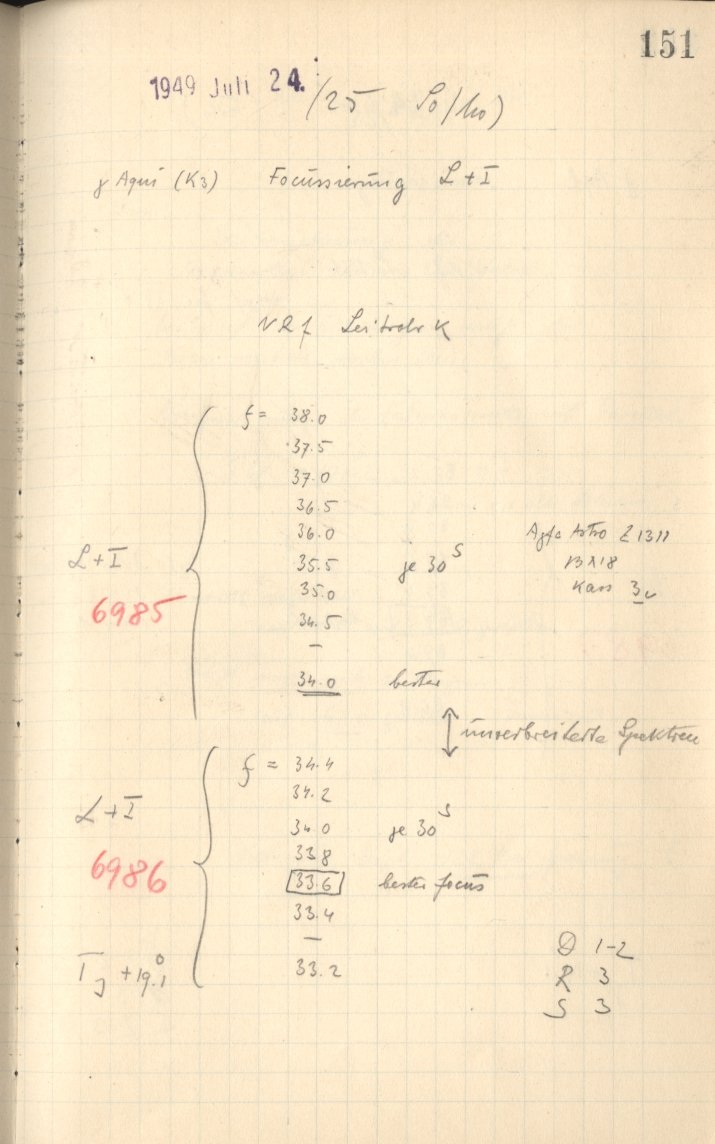 151
1949 Juli 24. /25 So/Mo)
γ Aqui (K3) Focussierung L+I
VRf Leitrohr K
f = 38.0
37.5
37.0
36.5
36.0
35.5
35.0
34.5
–
34.0 bester
L+I
6985
je 30 s
Agfa Astro Z 1311
13x18
Kass 3
↕ unverbreiterte Spektren
f = 34.4
34.2
34.0
33.8
33.6 bester focus
33.4
–
33.2
L+I
6986
je 30 s
T +19.1°
D 1-2
R 3
S 3